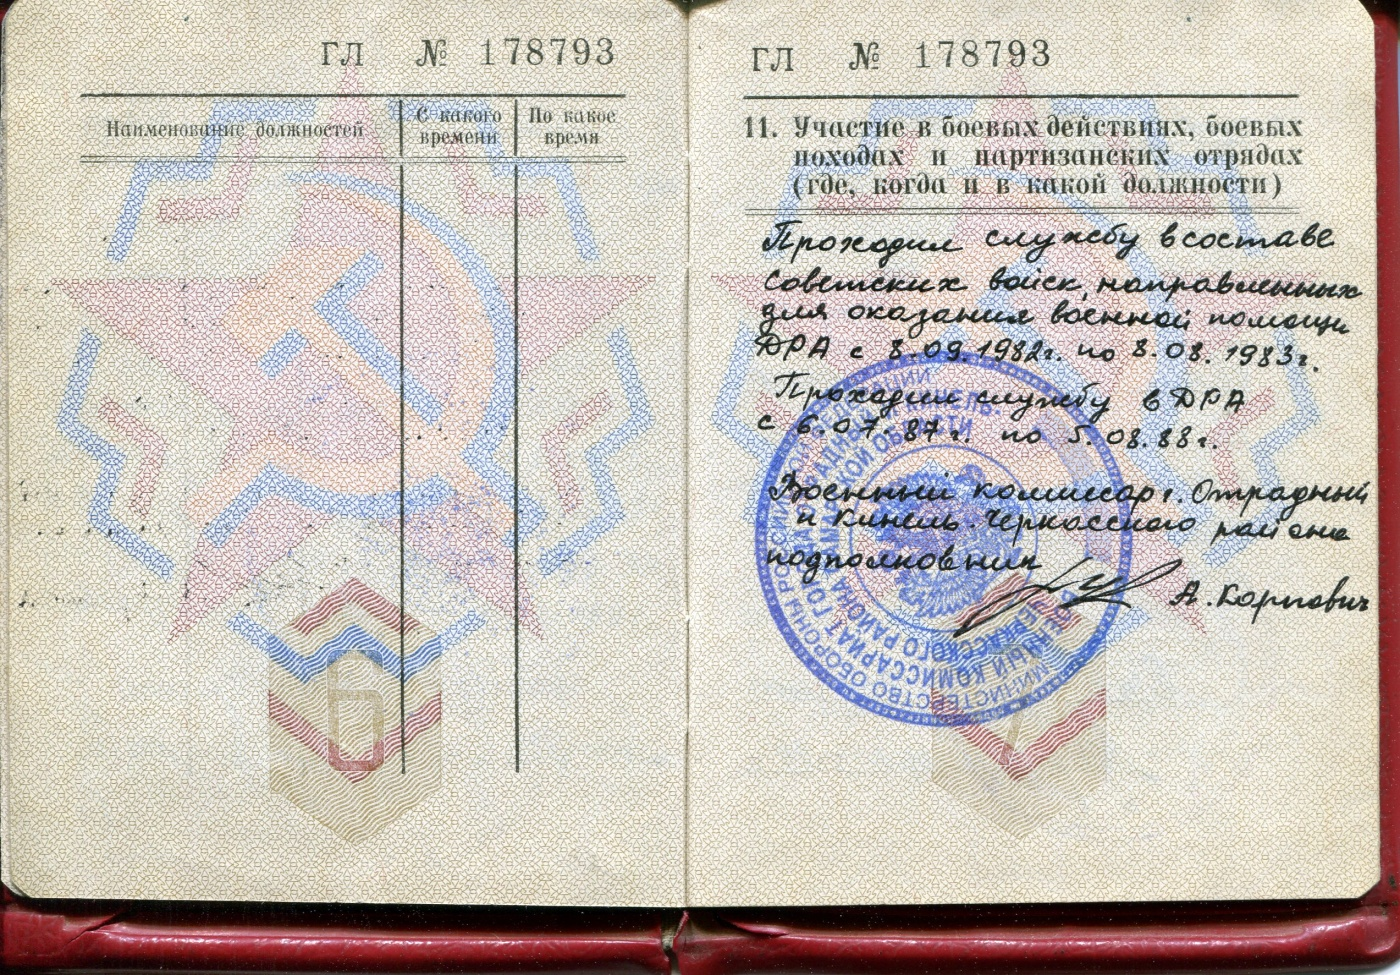 ГЛ № 178793
Наименование должностей
С какого времени
По какое время
6
ГЛ № 178793
11. Участие в боевых действиях, боевых
походах и партизанских отрядах
(где, когда и в какой должности)
Проходил службу в составе
Советских войск, направленных
для оказания военной помощи
ДРА с 8.09.1982г. по 8.08.1983г.
Проходил службу в ДРА
с 6.07.87г. по 5.08.88г.
Военный комиссар г. Отрадный
и Кинель-Черкасского района
подполковник
А. Карпович
МИНИСТЕРСТВО ОБОРОНЫ РОССИЙСКОЙ ФЕДЕРАЦИИ
ВОЕННЫЙ КОМИССАРИАТ ГОРОДА ОТРАДНЫЙ И КИНЕЛЬ-
ЧЕРКАССКОГО РАЙОНА САМАРСКОЙ ОБЛАСТИ
7